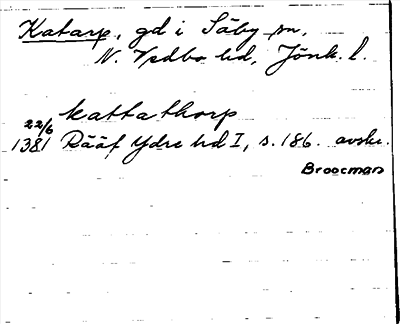 Katarp, gd i Säby sn,
N. Vedbo hd, Jönk. l.
kattathorp
22/6
1381 Rääf Ydre hd I, s. 186. avskr.
Broocman